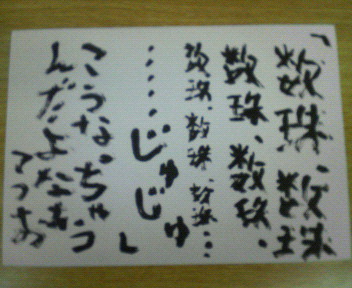 「数珠、数珠
数珠、数珠、
数珠、数珠、数珠…
……じゅじゅ」
こうなっちゃう
んだよなあ
てつお